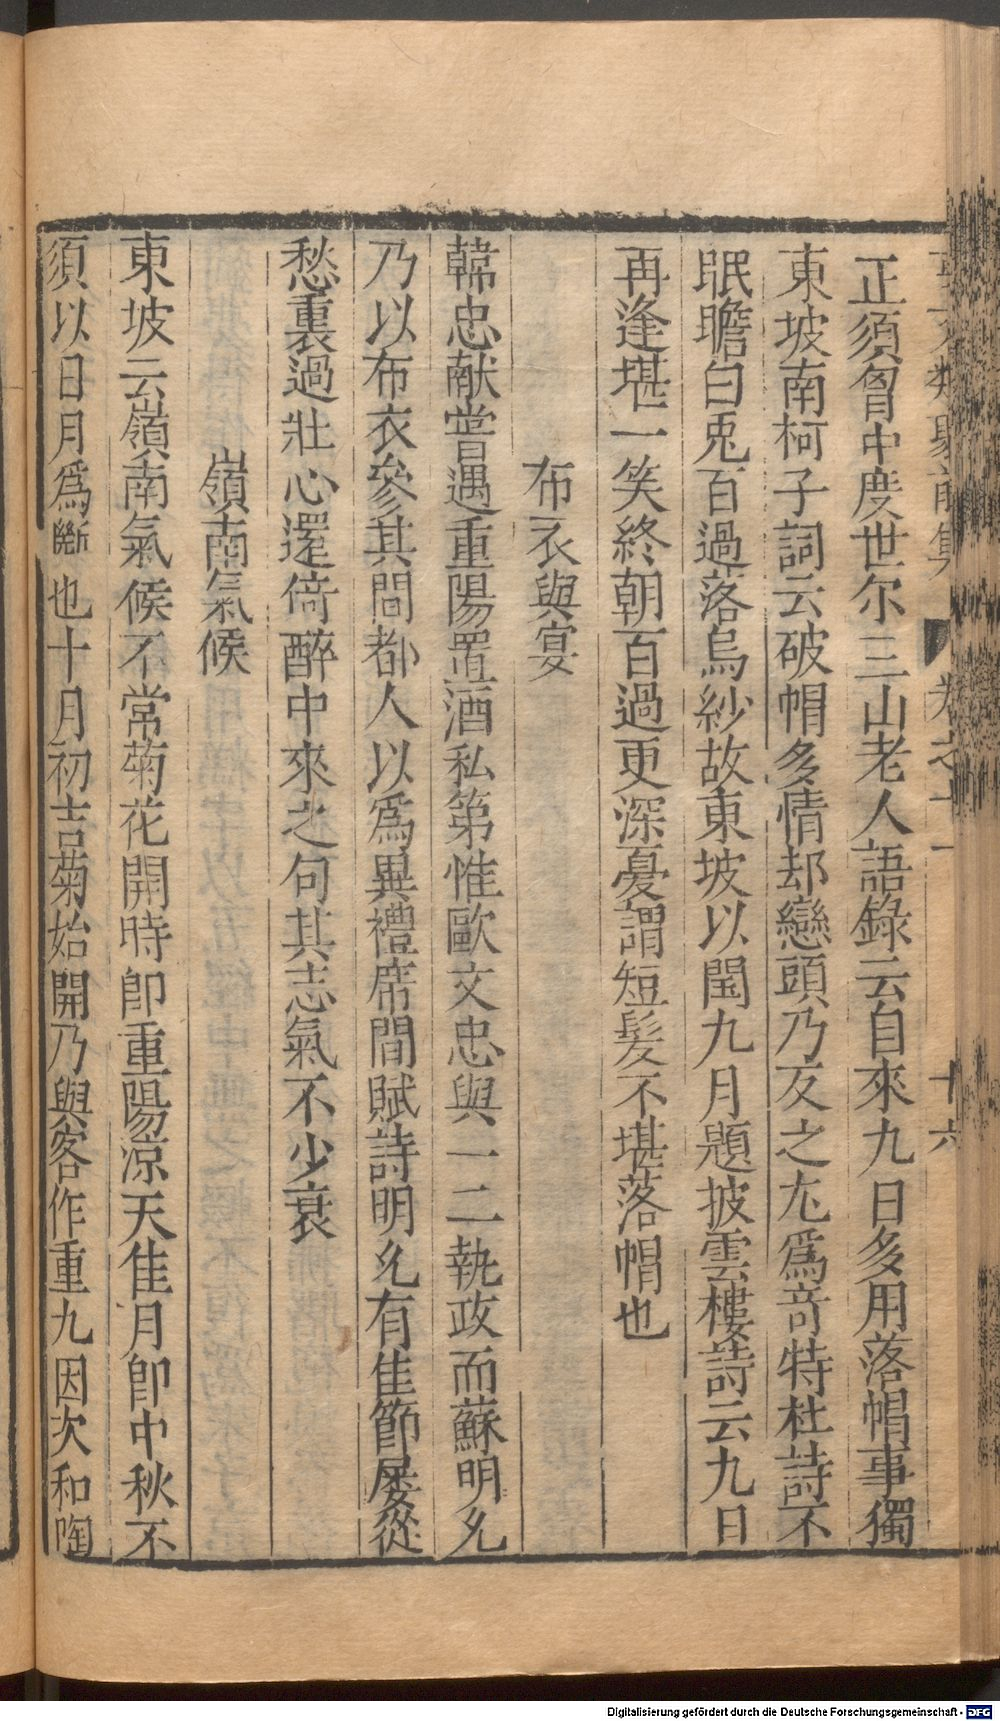 事文類聚前集 卷之十一 十六
正須胷中度世尔三山老人語錄云自來九日多用落帽事獨
東坡南柯子詞云破帽多情却戀頭乃反之尢爲竒特杜詩不
眠瞻白兎百過落烏紗故東坡以閏九月題披雲樓詩云九日
再逢堪一笑終朝百過更深憂謂短髮不堪落帽也
布衣與宴
韓忠献甞遇重陽置酒私第惟歐文忠與一二執政而蘇明允
乃以布衣參其間都人以爲異禮席間賦詩明允有佳節屡從
愁裏過壯心還倚醉中來之句其志氣不少衰
嶺南氣候
東坡云嶺南氣候不常菊花開時卽重陽凉天佳月卽中秋不
須以日月爲斷也十月初吉菊始開乃與客作重九因次和陶
Digitalisierung gefördert durch die Deutsche Forschungsgemeinschaft - DFG